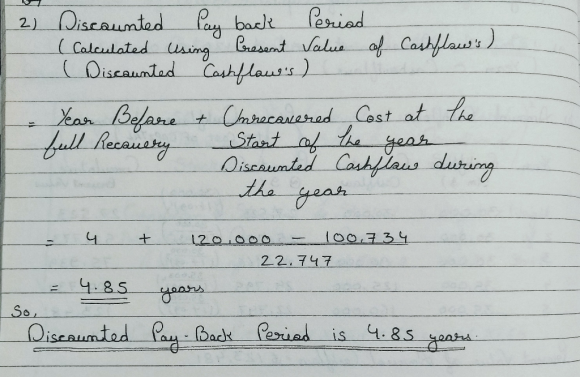 2) Discounted Pay back Period
(Calculated Using Present Value of Cashflow's)
(Discounted Cashflow's)
= Year Before + Unrecovered Cost at the
full Recovery Start of the year
Discounted Cashflow during
the year
= 4 + 120,000 - 100,734
22,747
= 4.85 years
So,
Discounted Pay-Back Period is 4.85 years.